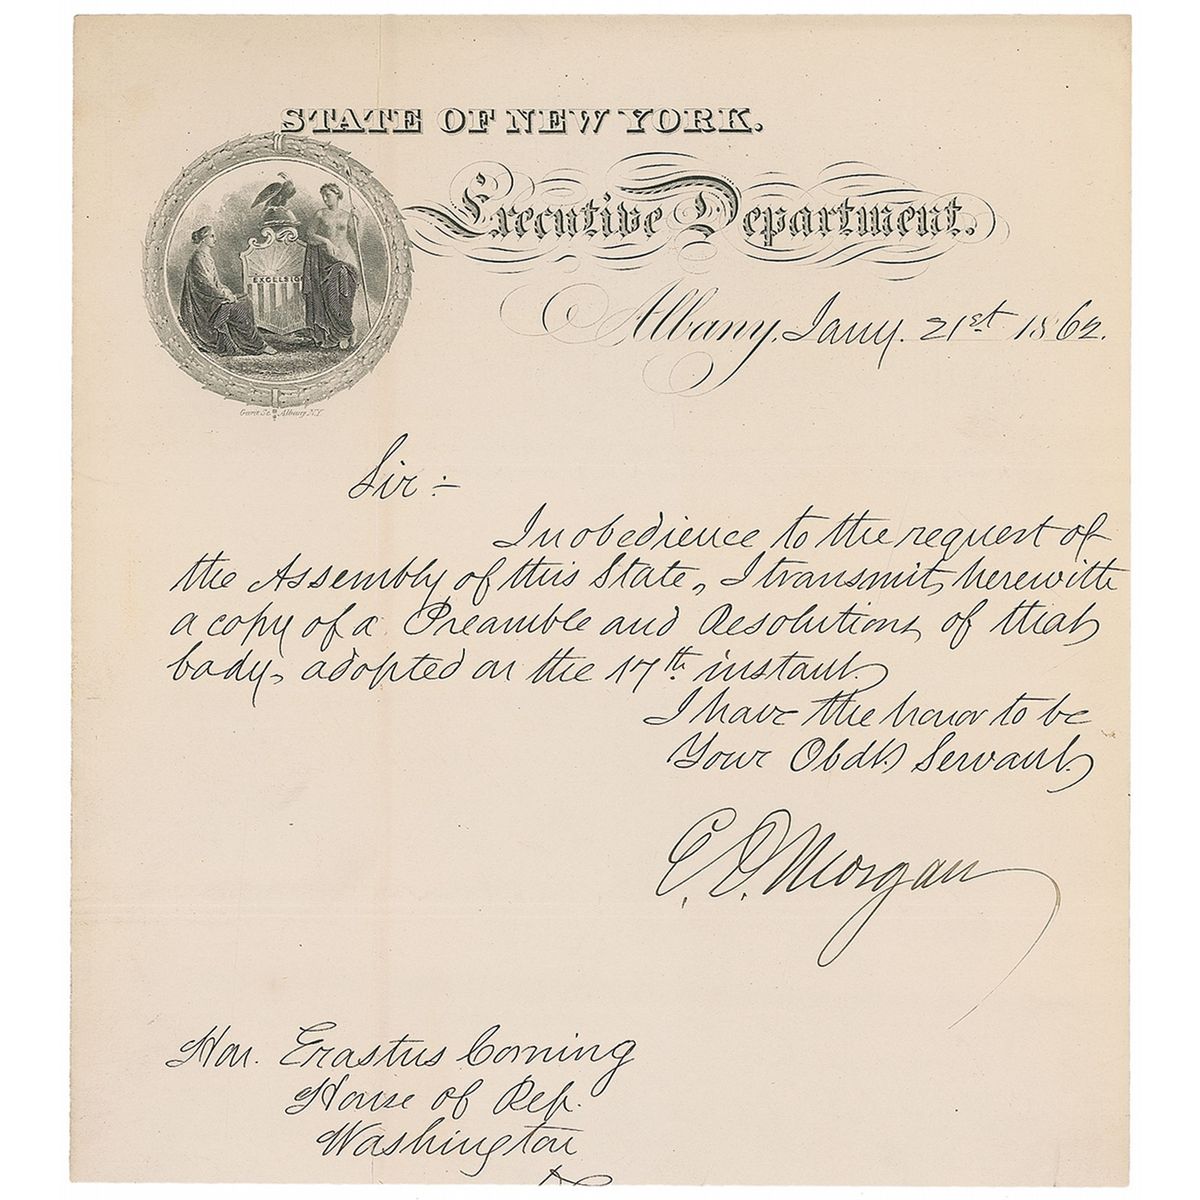 STATE OF NEW YORK.
Executive Department.
EXCELSIOR
Albany, Jany. 21st 1862.
Albany N.Y.
Sir :-
In obedience to the request of
the Assembly of this State, I transmit, herewith
a copy of a Preamble and Resolutions of that
body, adopted on the 17th instant.
I have the honor to be
Your Obdt. Servant.
E. D. Morgan
Hon. Erastus Corning
House of Rep.
Washington